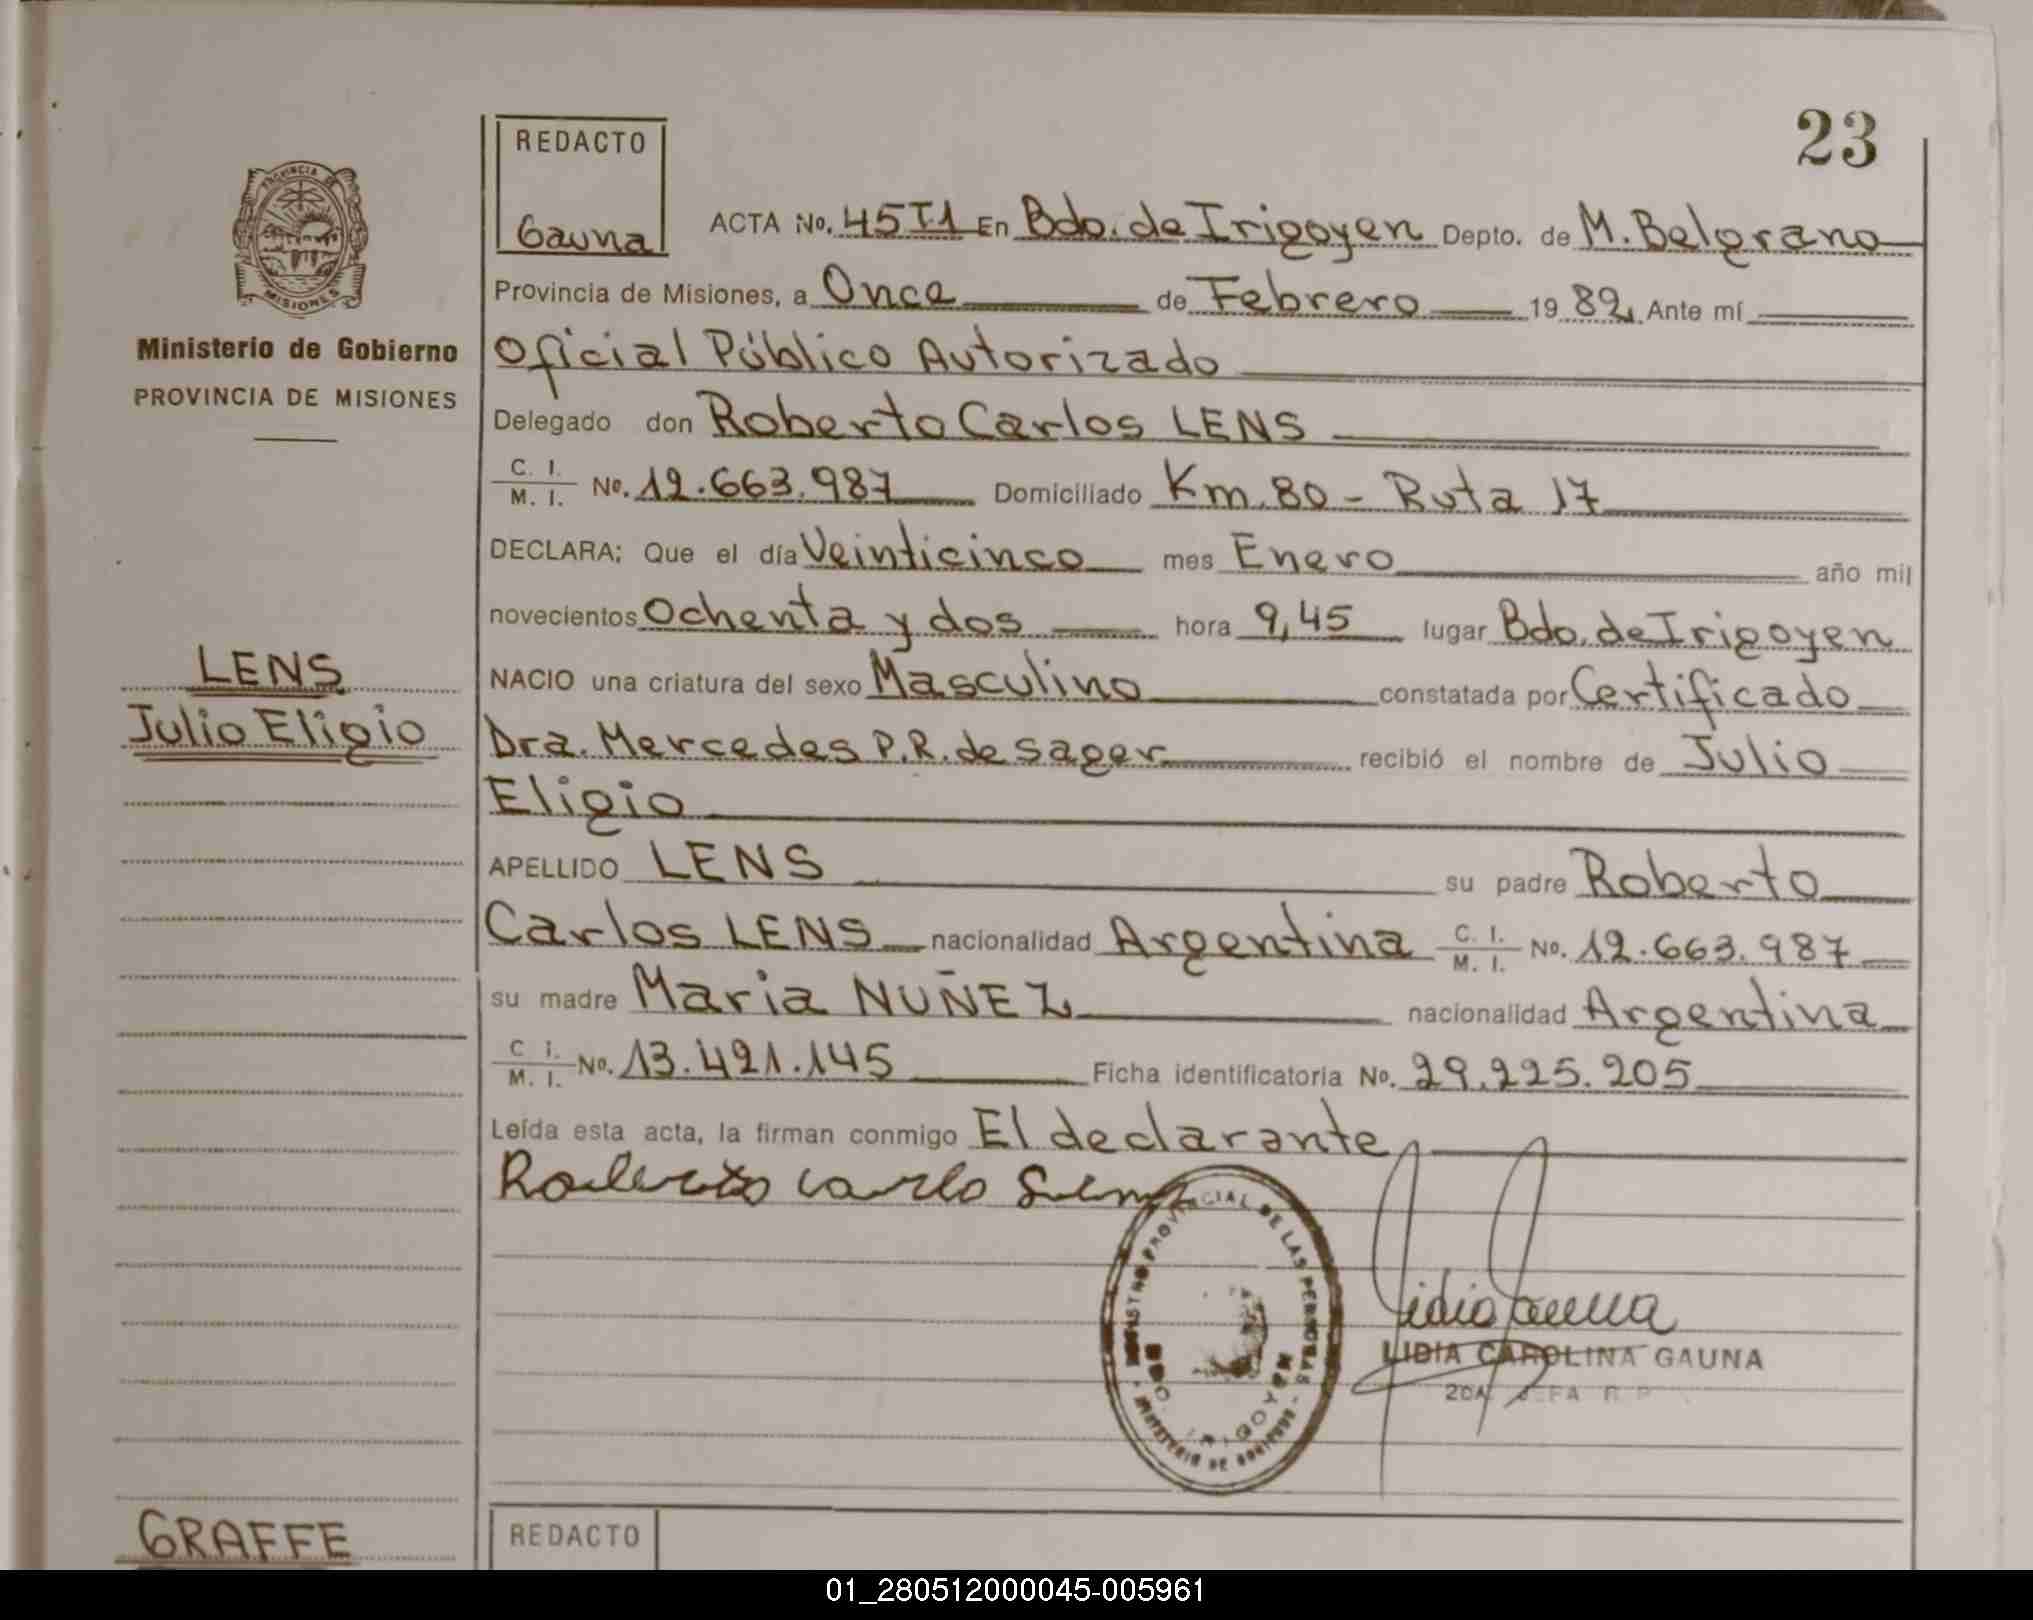 23
REDACTO
Gauna
ACTA No. 45 T.1 En Bdo. de Irigoyen Depto. de M. Belgrano
Provincia de Misiones, a Once de Febrero 1982 Ante mí
Oficial Público Autorizado
Delegado don Roberto Carlos LENS
C. I. / M. I. No. 12.663.987 Domiciliado Km. 80 - Ruta 17
DECLARA: Que el día Veinticinco mes Enero año mil
novecientos Ochenta y dos hora 9,45 lugar Bdo. de Irigoyen
NACIO una criatura del sexo Masculino constatada por Certificado
Dra. Mercedes P.R. de Sager recibió el nombre de Julio
Eligio
APELLIDO LENS su padre Roberto
Carlos LENS nacionalidad Argentina C. I. / M. I. No. 12.663.987
su madre Maria NUÑEZ nacionalidad Argentina
C I. / M. I. No. 13.421.145 Ficha identificatoria No. 29.225.205
Leída esta acta, la firman conmigo El declarante
Roberto Carlo
PROVINCIAL DE LAS PERSONAS
BDO. IRIGOYEN
MINISTERIO DE GOBIERNO
Lidia Gauna
LIDIA CAROLINA GAUNA
2DA. JEFA R. P.
PROVINCIA DE
MISIONES
Ministerio de Gobierno
PROVINCIA DE MISIONES
LENS
Julio Eligio
GRAFFE
REDACTO
01_280512000045-005961